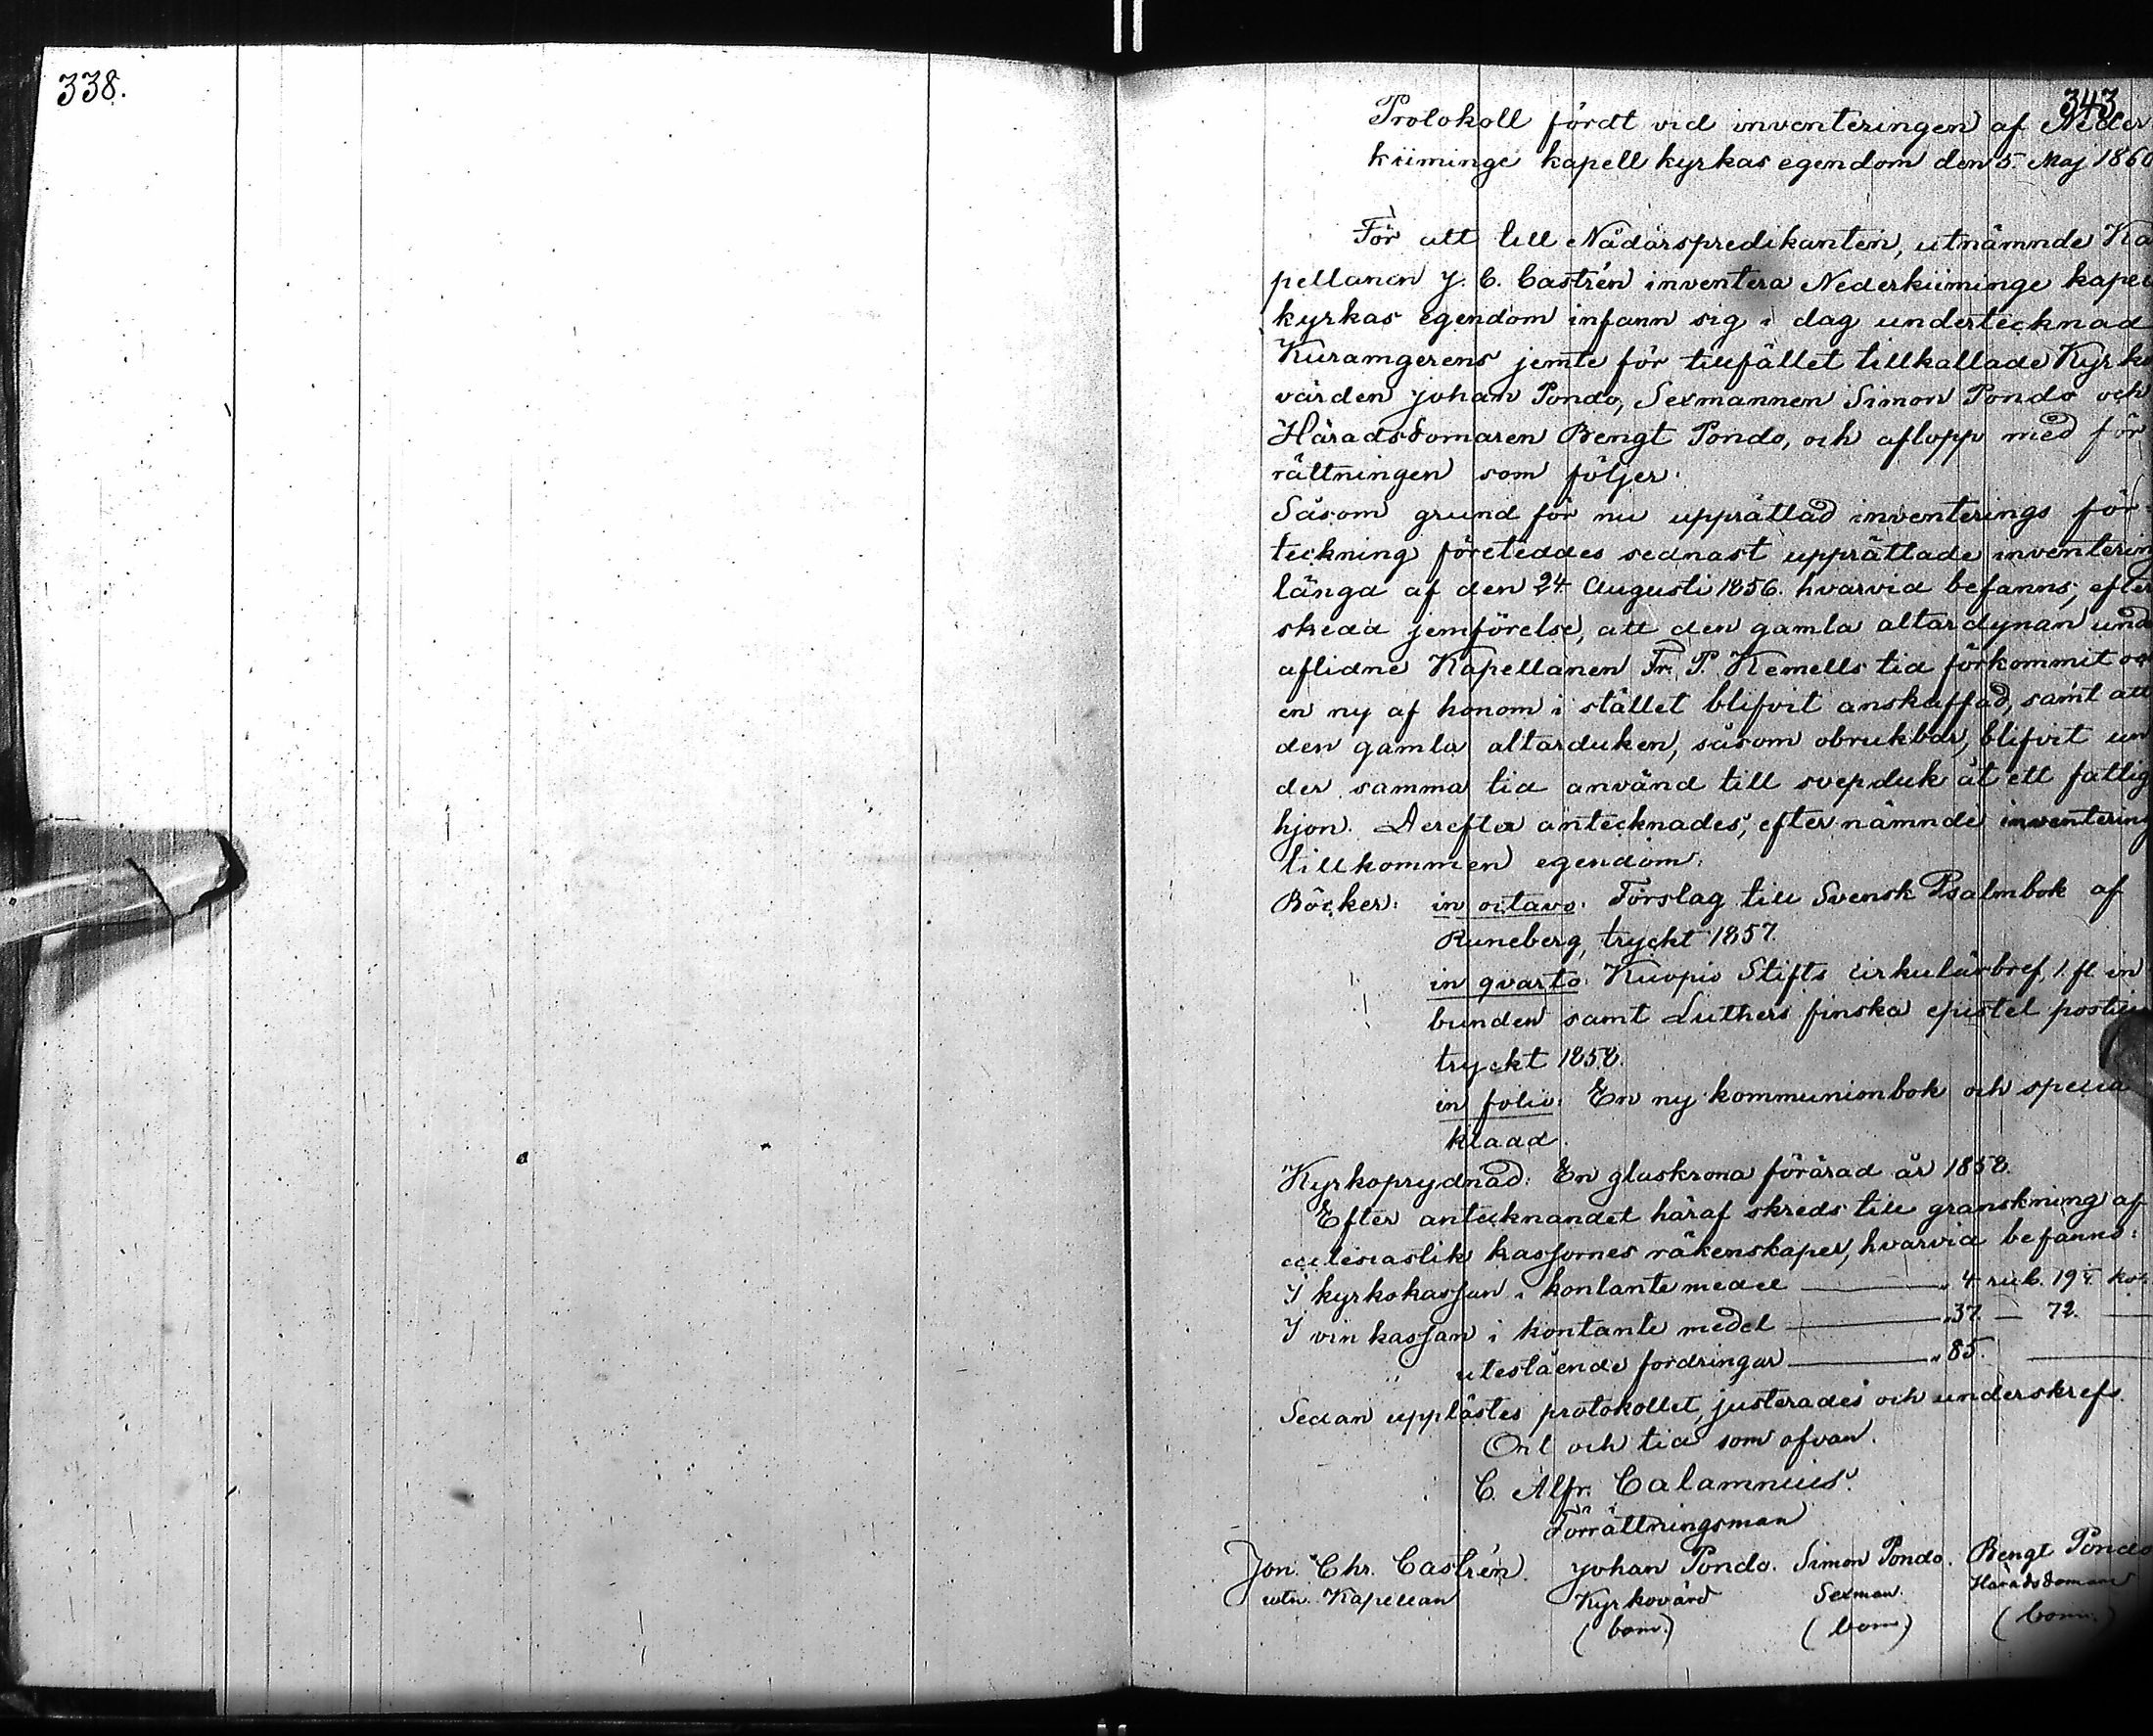 338.
343
Protokoll fördt vid inventeringen af Neder
kiiminge kapell kyrkas egendom den 5. Maj 1860
För att till Nådårspredikanten, utnämnde Ka
pellanen J. C. Castrén inventera Nederkiiminge kapell
kyrkas egendom infann sig i dag undertecknad
Kuramgerens jemte för tillfället tillkallade Kyrko
värden Johan Pondo, Sexmannen Simon Pondo och
Häradsdomaren Bengt Pondo, och aflopp med för
rättningen som följer:
Såsom grund för nu upprättad inventerings för-
teckning företeddes sednast upprättade inventerin
längd af den 24 Augusti 1856. hvarvid befanns, efter
skedd jemförelse, att den gamla altardynan und
aflidne Kapellanen Fr. P. Kemells tid förkommit och
en ny af honom i stället blifvit anskaffad, samt att
den gamla altarduken, såsom obrukbar, blifvit un
der samma tid använd till svepduk åt ett fattig
hjon. Derefter antecknades, efter nämnde inventering
tillkommen egendom:
Böcker: in octavo: Förslag till Svensk Psalmbok af
Runeberg, tryckt 1857.
in qvarto: Kuopio Stifts cirkulärbref, 1. fl. in
bunden samt Luthers finska epistel postill
tryckt 1858.
in folio: En ny kommunionbok och specia
klaad.
Kyrkoprydnad: En glaskrona förärad år 1858.
Efter antecknandet häraf skreds till granskning af
ecclesiastik kassornes räkenskaper, hvarvid befanns:
I kyrkokassan i kontante medel — „ 4 rub. 19 ko.
I vin kassan i kontante medel — „ 37. — 72. —
„ utestående fordringar — „ 85. —
Sedan upplästes protokollet, justerades och underskrefs.
Ort och tid som ofvan.
C. Alfr. Calamnius.
Förrättningsman
Jon. Chr. Castrén. Johan Pondo. Simon Pondo. Bengt Pondo
utn. Kapellan Kyrkovärd Sexman. Häradsdomare
(bom.) (bom.) (bom.)